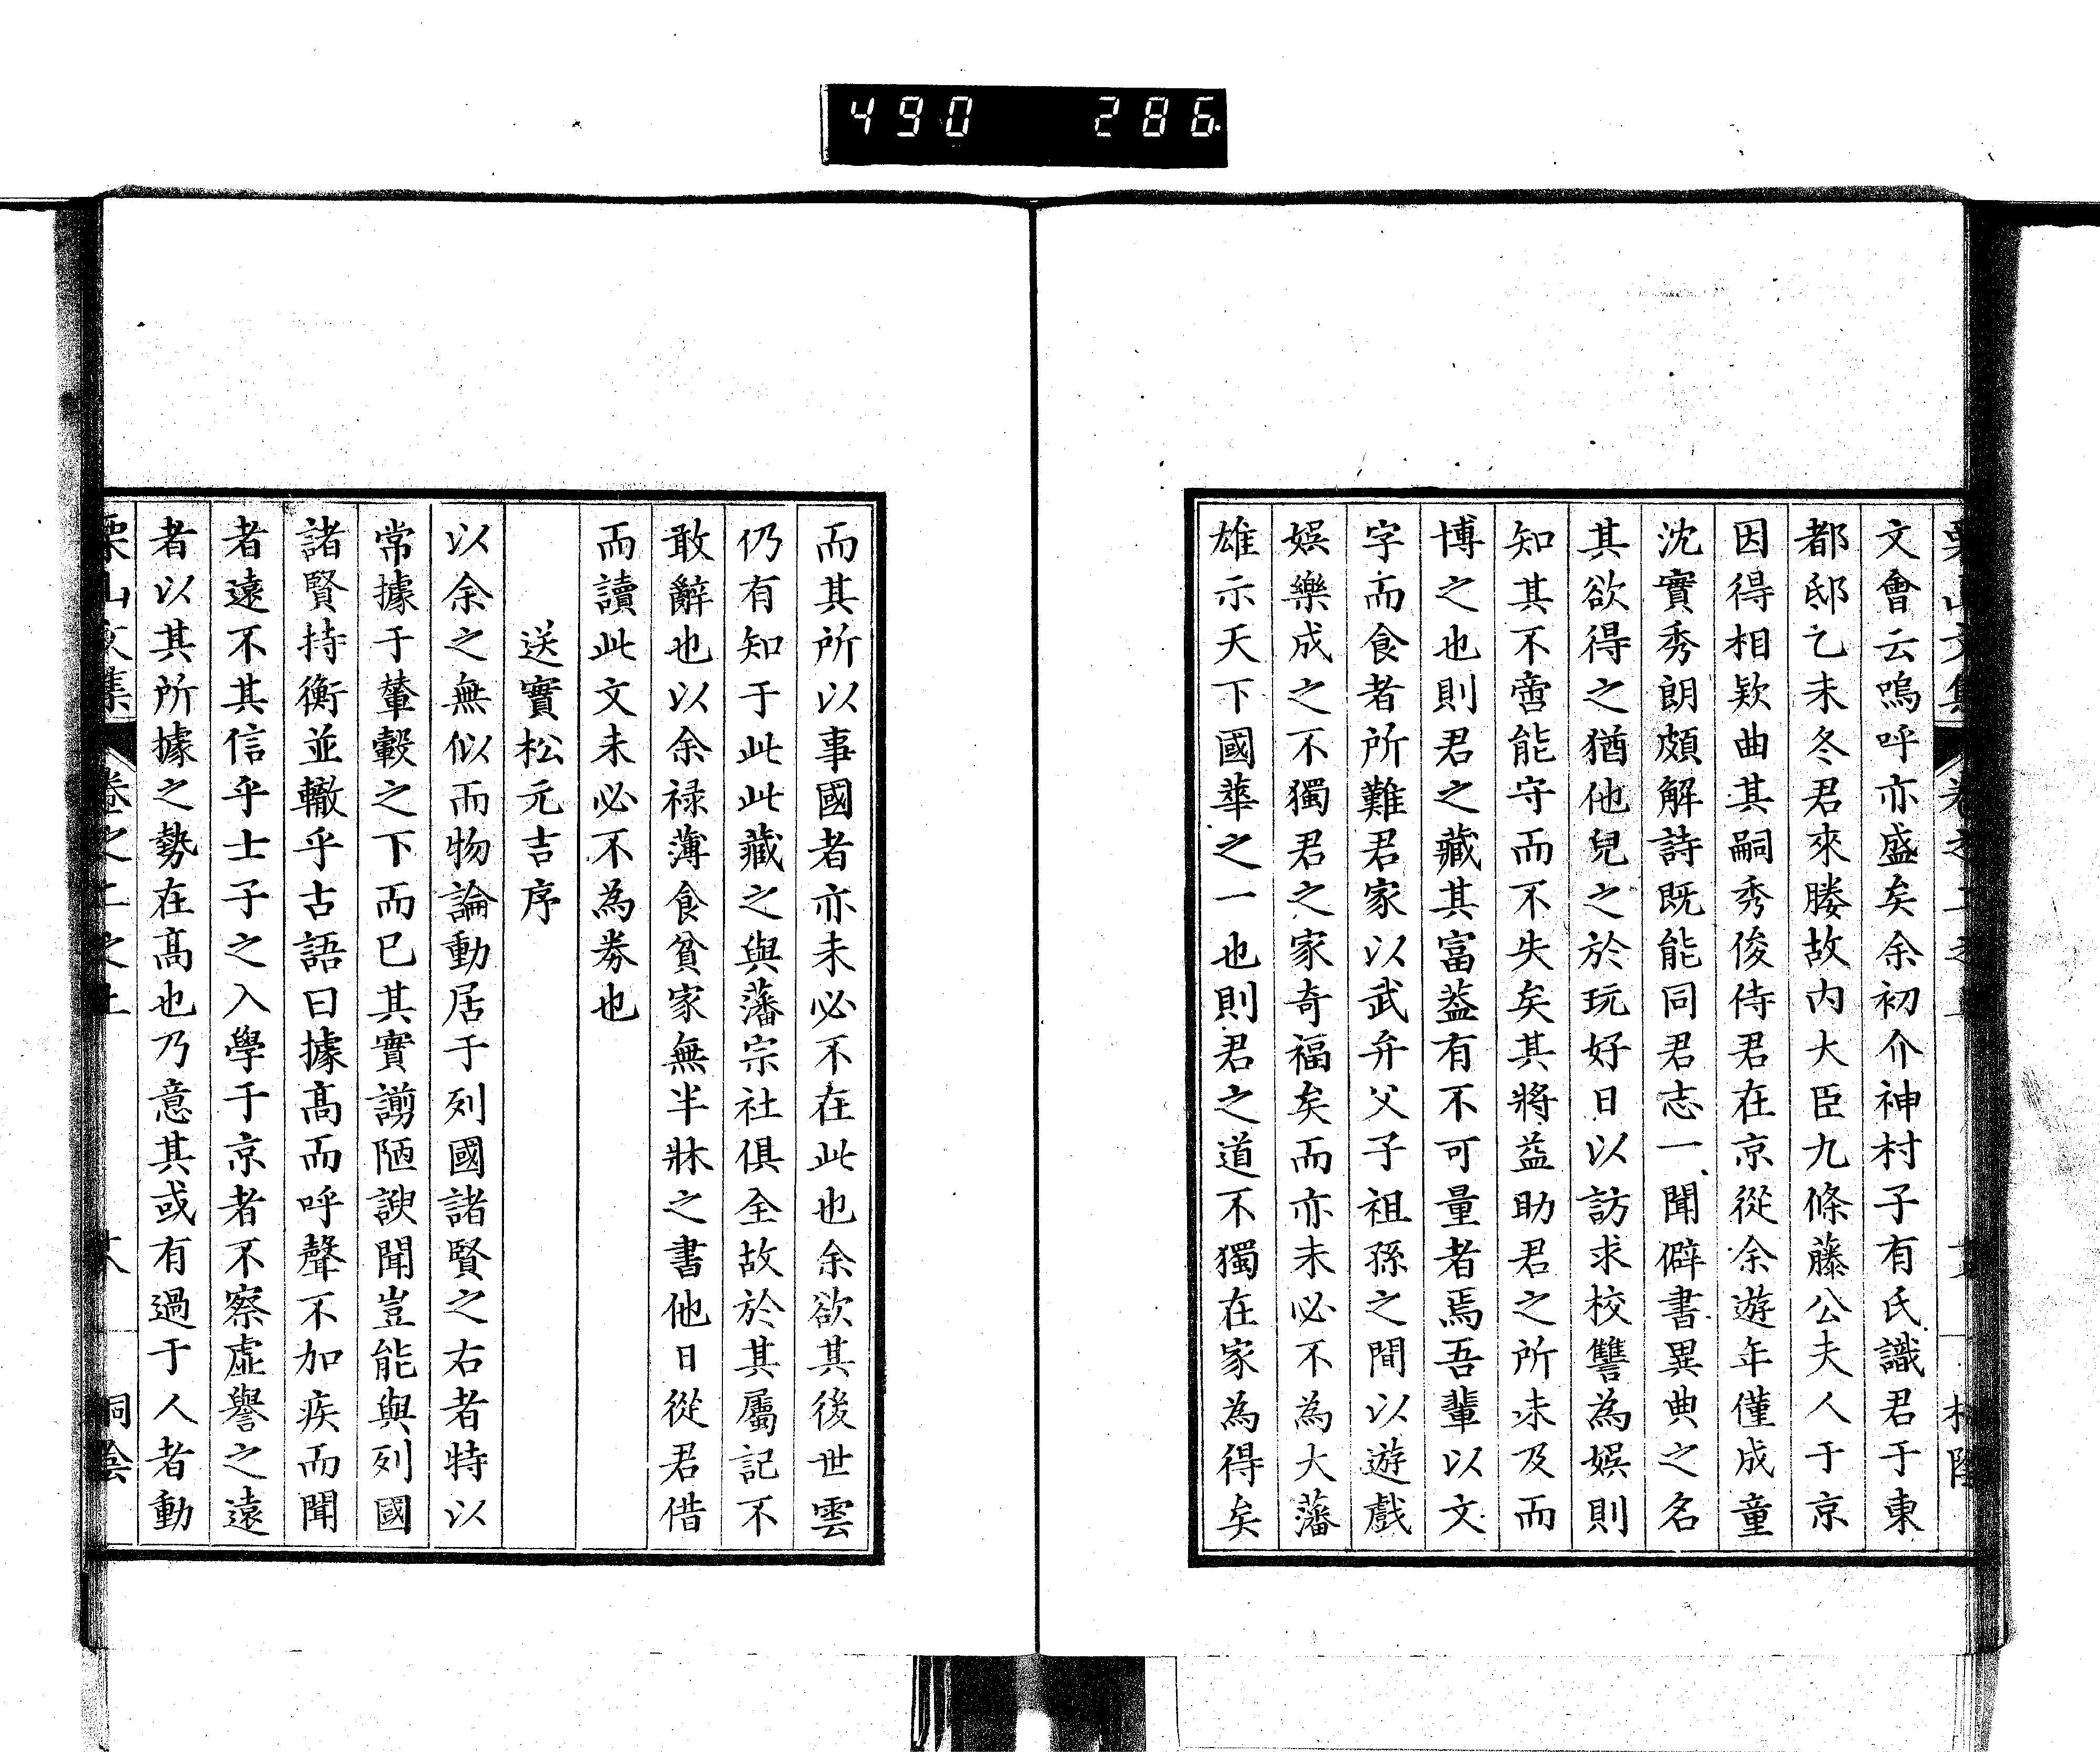 490 286
文會云嗚呼亦盛矣余初介神村子有氏識君于東
都邸乙未冬君來媵故内大臣九條藤公夫人于京
因得相欵曲其嗣秀俊侍君在京從余遊年僅成童
沈實秀朗頗解詩既能同君志一聞僻書異典之名
其欲得之猶他兒之於玩好日以訪求校讐為娯則
知其不啻能守而不失矣其將益助君之所未及而
博之也則君之藏其富葢有不可量者焉吾輩以文
字而食者所難君家以武弁父子祖孫之間以遊戲
娯樂成之不獨君之家奇福矣而亦未必不為大藩
雄示天下國華之一也則君之道不獨在家為得矣
而其所以事國者亦未必不在此也余欲其後世雲
仍有知于此此藏之與藩宗社俱全故於其屬記不
敢辭也以余禄薄食貧家無半牀之書他日從君借
而讀此文未必不為劵也
送實松元吉序
以余之無似而物論動居于列國諸賢之右者特以
常據于輦轂之下而已其實謭陋謏聞豈能與列國
諸賢持衡並轍乎古語曰據髙而呼聲不加疾而聞
者遠不其信乎士子之入學于京者不察虛譽之遠
者以其所據之勢在髙也乃意其或有過于人者動
栗山文集 卷之二之上